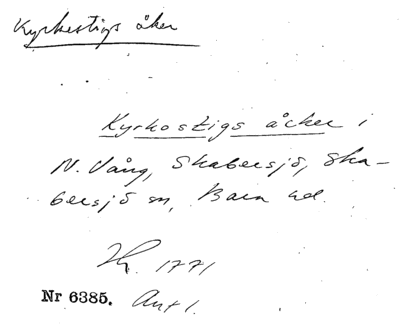 Kyrkestigs åker
Kyrkostigs åcker i
N. Vång, Skabersjö, Ska-
bersjö sn, Bara hd.
1771
Nr 6385. Akt 1.